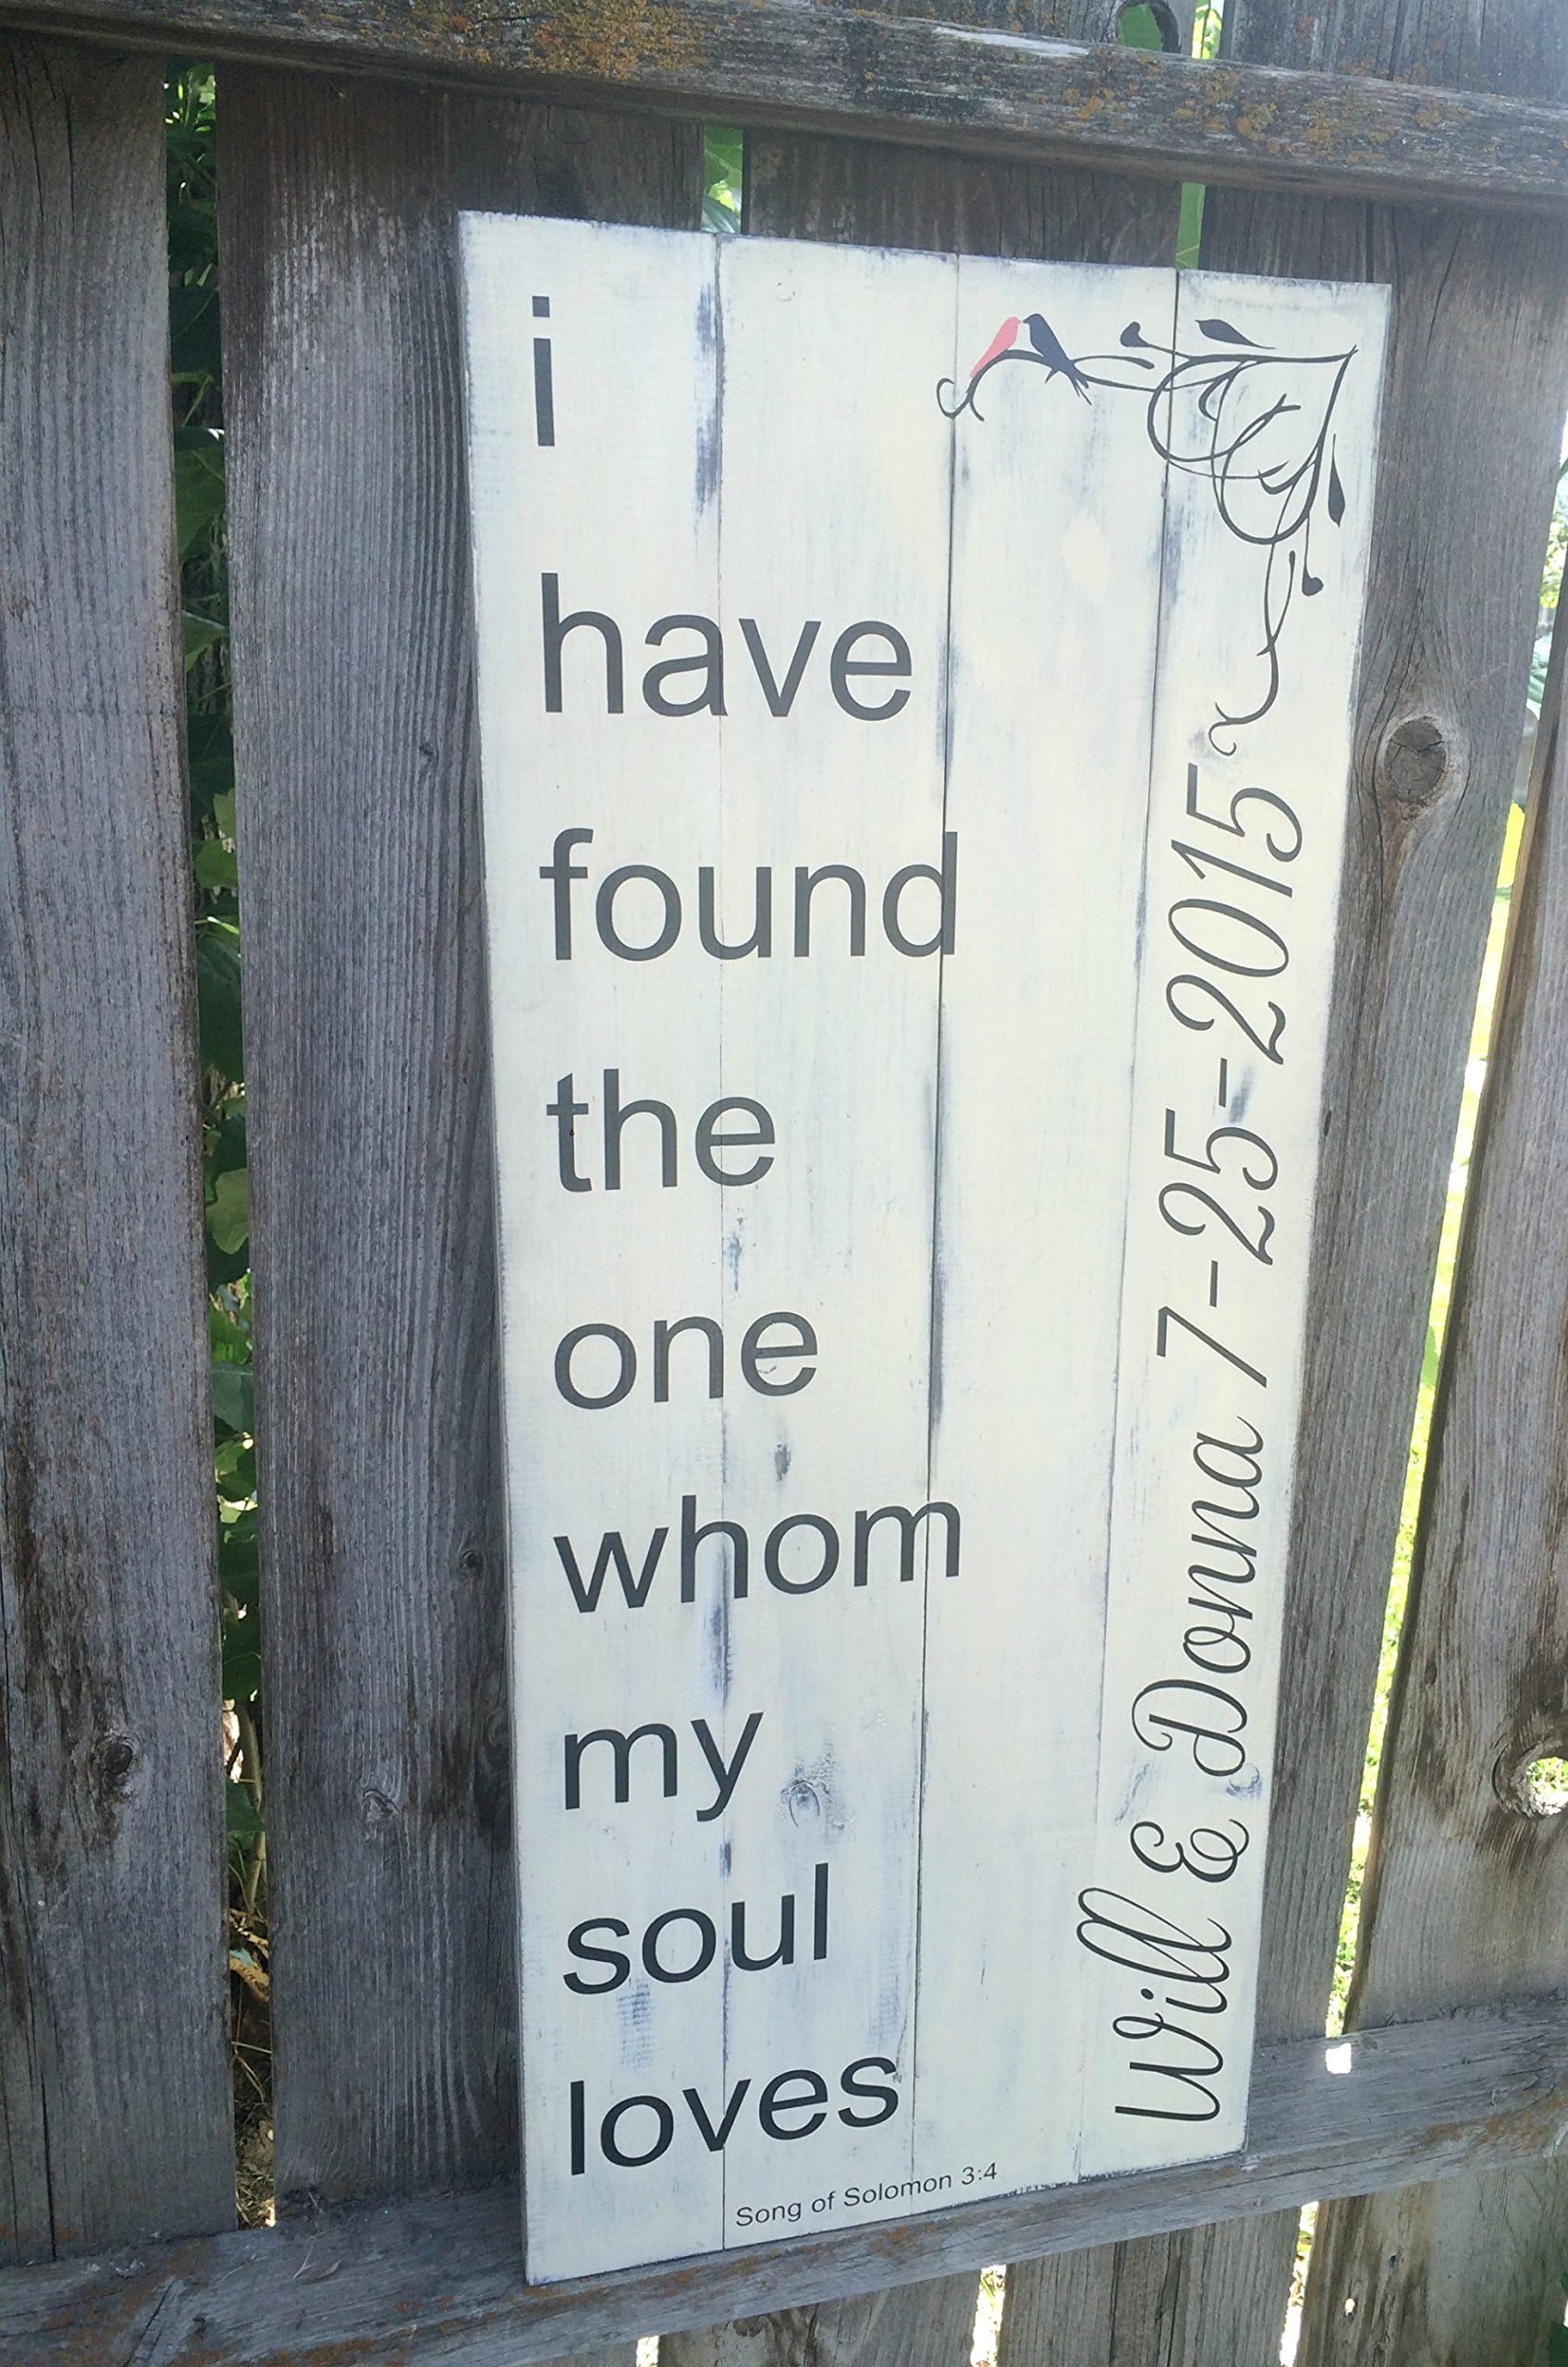 i
have
found
the
one
whom
my
soul
loves
Song of Solomon 3:4
Will & Donna 7-25-2015